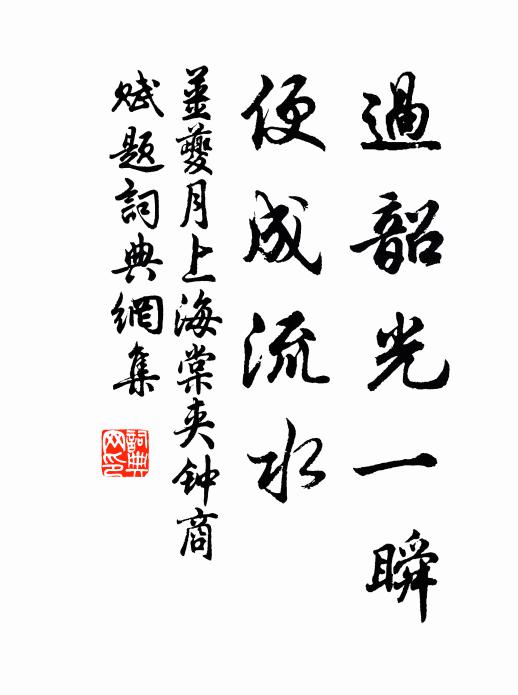 過韶光一瞬
便成流水
姜夔月上海棠夹钟商
赋题詞典網集
詞典
网印